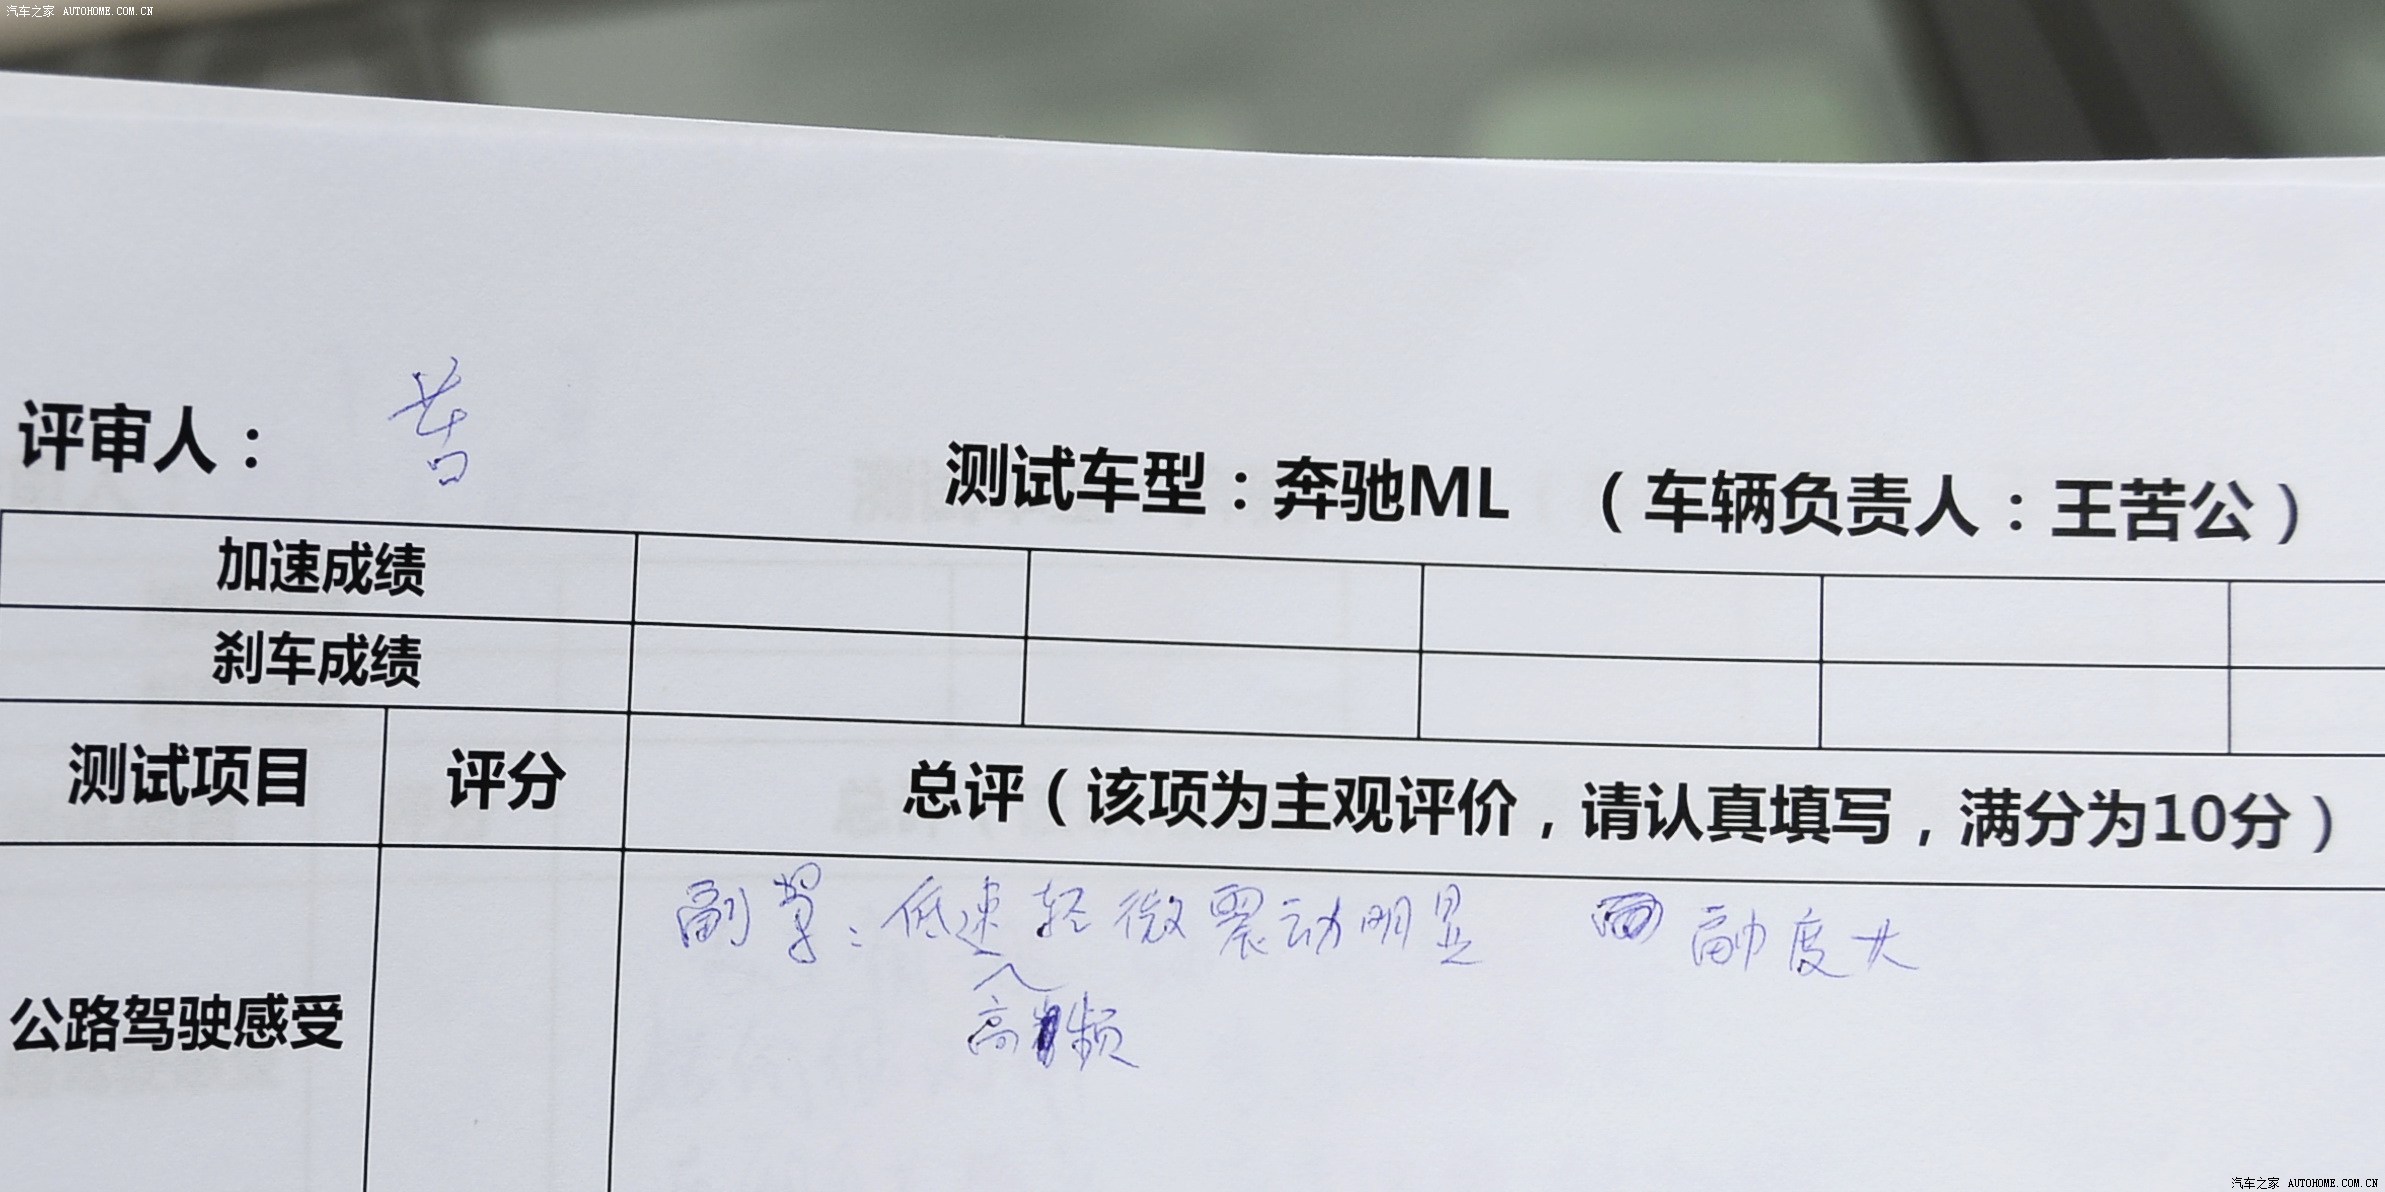 汽车之家 AUTOHOME.COM.CN
评审人： 苦
测试车型：奔驰ML （车辆负责人：王苦公）
加速成绩
刹车成绩
测试项目 评分 总评（该项为主观评价，请认真填写，满分为10分）
副驾：低速轻微震动明显 幅度大
高频
公路驾驶感受
汽车之家 AUTOHOME.COM.CN